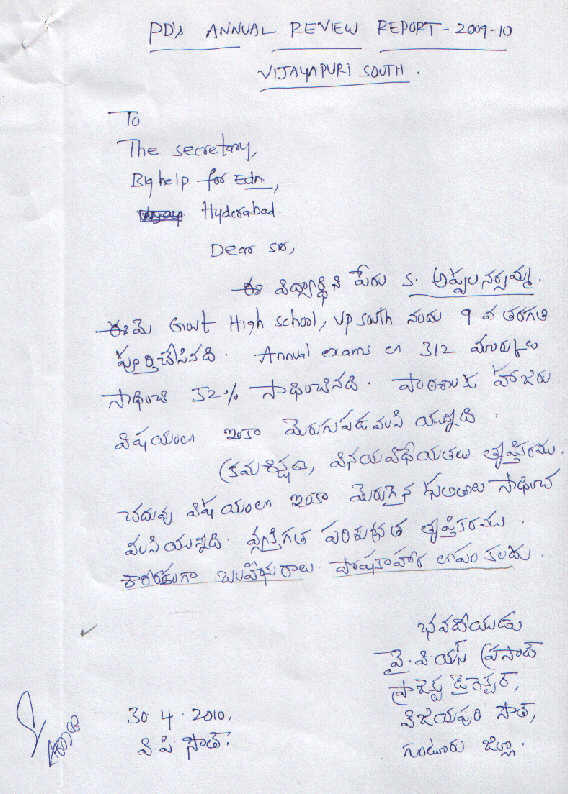 PD's ANNUAL REVIEW REPORT - 2009-10
VIJAYAPURI SOUTH.
To
The secretary,
By help for Edn,
Hyderabad
Dear sir,
ఈ విద్యార్థిని పేరు S. అప్పల నర్సమ్మ.
ఈమె Govt High school, VP south నందు 9 వ తరగతి
పూర్తిచేసినది. Annual exams లో 312 మార్కులు
సాధించి 52% సాధించినది. పాఠశాలకు హాజరు
విషయంలో ఇంకా మెరుగుపడవలసి యున్నది.
క్రమశిక్షణ, వినయవిధేయతలు తృప్తికరము.
చదువు విషయంలో ఇంకా మెరుగైన ఫలితాలు సాధించ
వలసియున్నది. వ్యక్తిగత పరిశుభ్రత తృప్తికరము.
శారీరకంగా బలహీనురాలు. పోషకాహార లోపం కలదు.
భవదీయుడు
వై. పి యస్ ప్రసాద్
ప్రాజెక్టు డైరెక్టర్,
విజయపురి సౌత్,
గుంటూరు జిల్లా.
30.4.2010.
వి పి సౌత్.